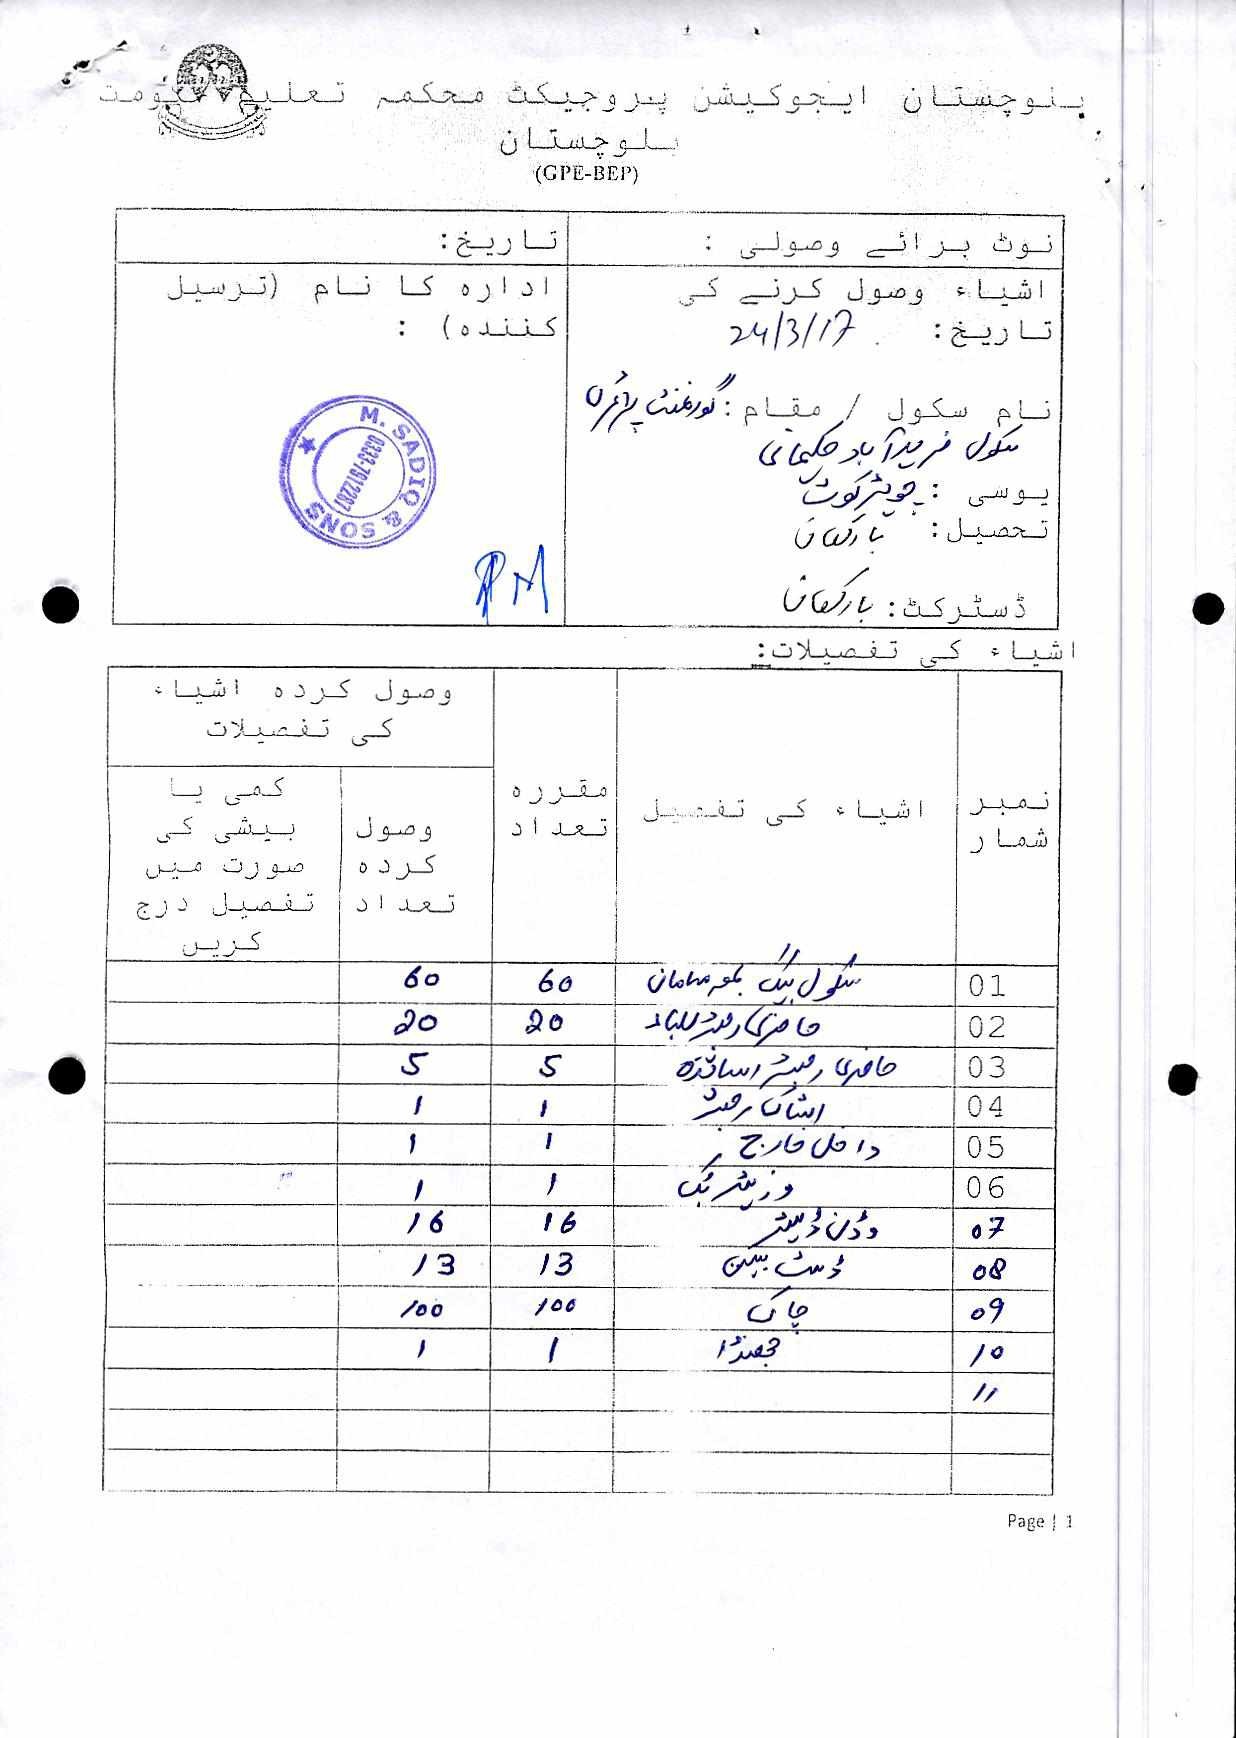 بلوچستان ایجوکیشن پروجیکٹ محکمہ تعلیم حکومت
بلوچستان
(GPE-BEP)
نوٹ برائے وصولی :
تاریخ:
اشیاء وصول کرنے کی
تاریخ: 24/3/17
نام سکول / مقام: گورنمنٹ پرائمری
سکول فرید آباد
یوسی :
تحصیل: بارکھان
ڈسٹرکٹ: بارکھان
ادارہ کا نام (ترسیل
کنندہ) :
M. SADIQ & SONS
0333-7912287
اشیاء کی تفصیلات:
نمبر شمار
اشیاء کی تفصیل
مقررہ تعداد
وصول کردہ اشیاء کی تفصیلات
وصول کردہ تعداد
کمی یا بیشی کی صورت میں تفصیل درج کریں
01 سکول بیگ بمعہ سامان 60 60
02 حاضری رجسٹر طلباء 20 20
03 حاضری رجسٹر اساتذہ 5 5
04 اسٹاک رجسٹر 1 1
05 داخل خارج 1 1
06 وزیٹر بک 1 1
07 16 16
08 ڈسٹ بین 13 13
09 چاک 100 100
10 جھنڈا 1 1
11
Page | 1